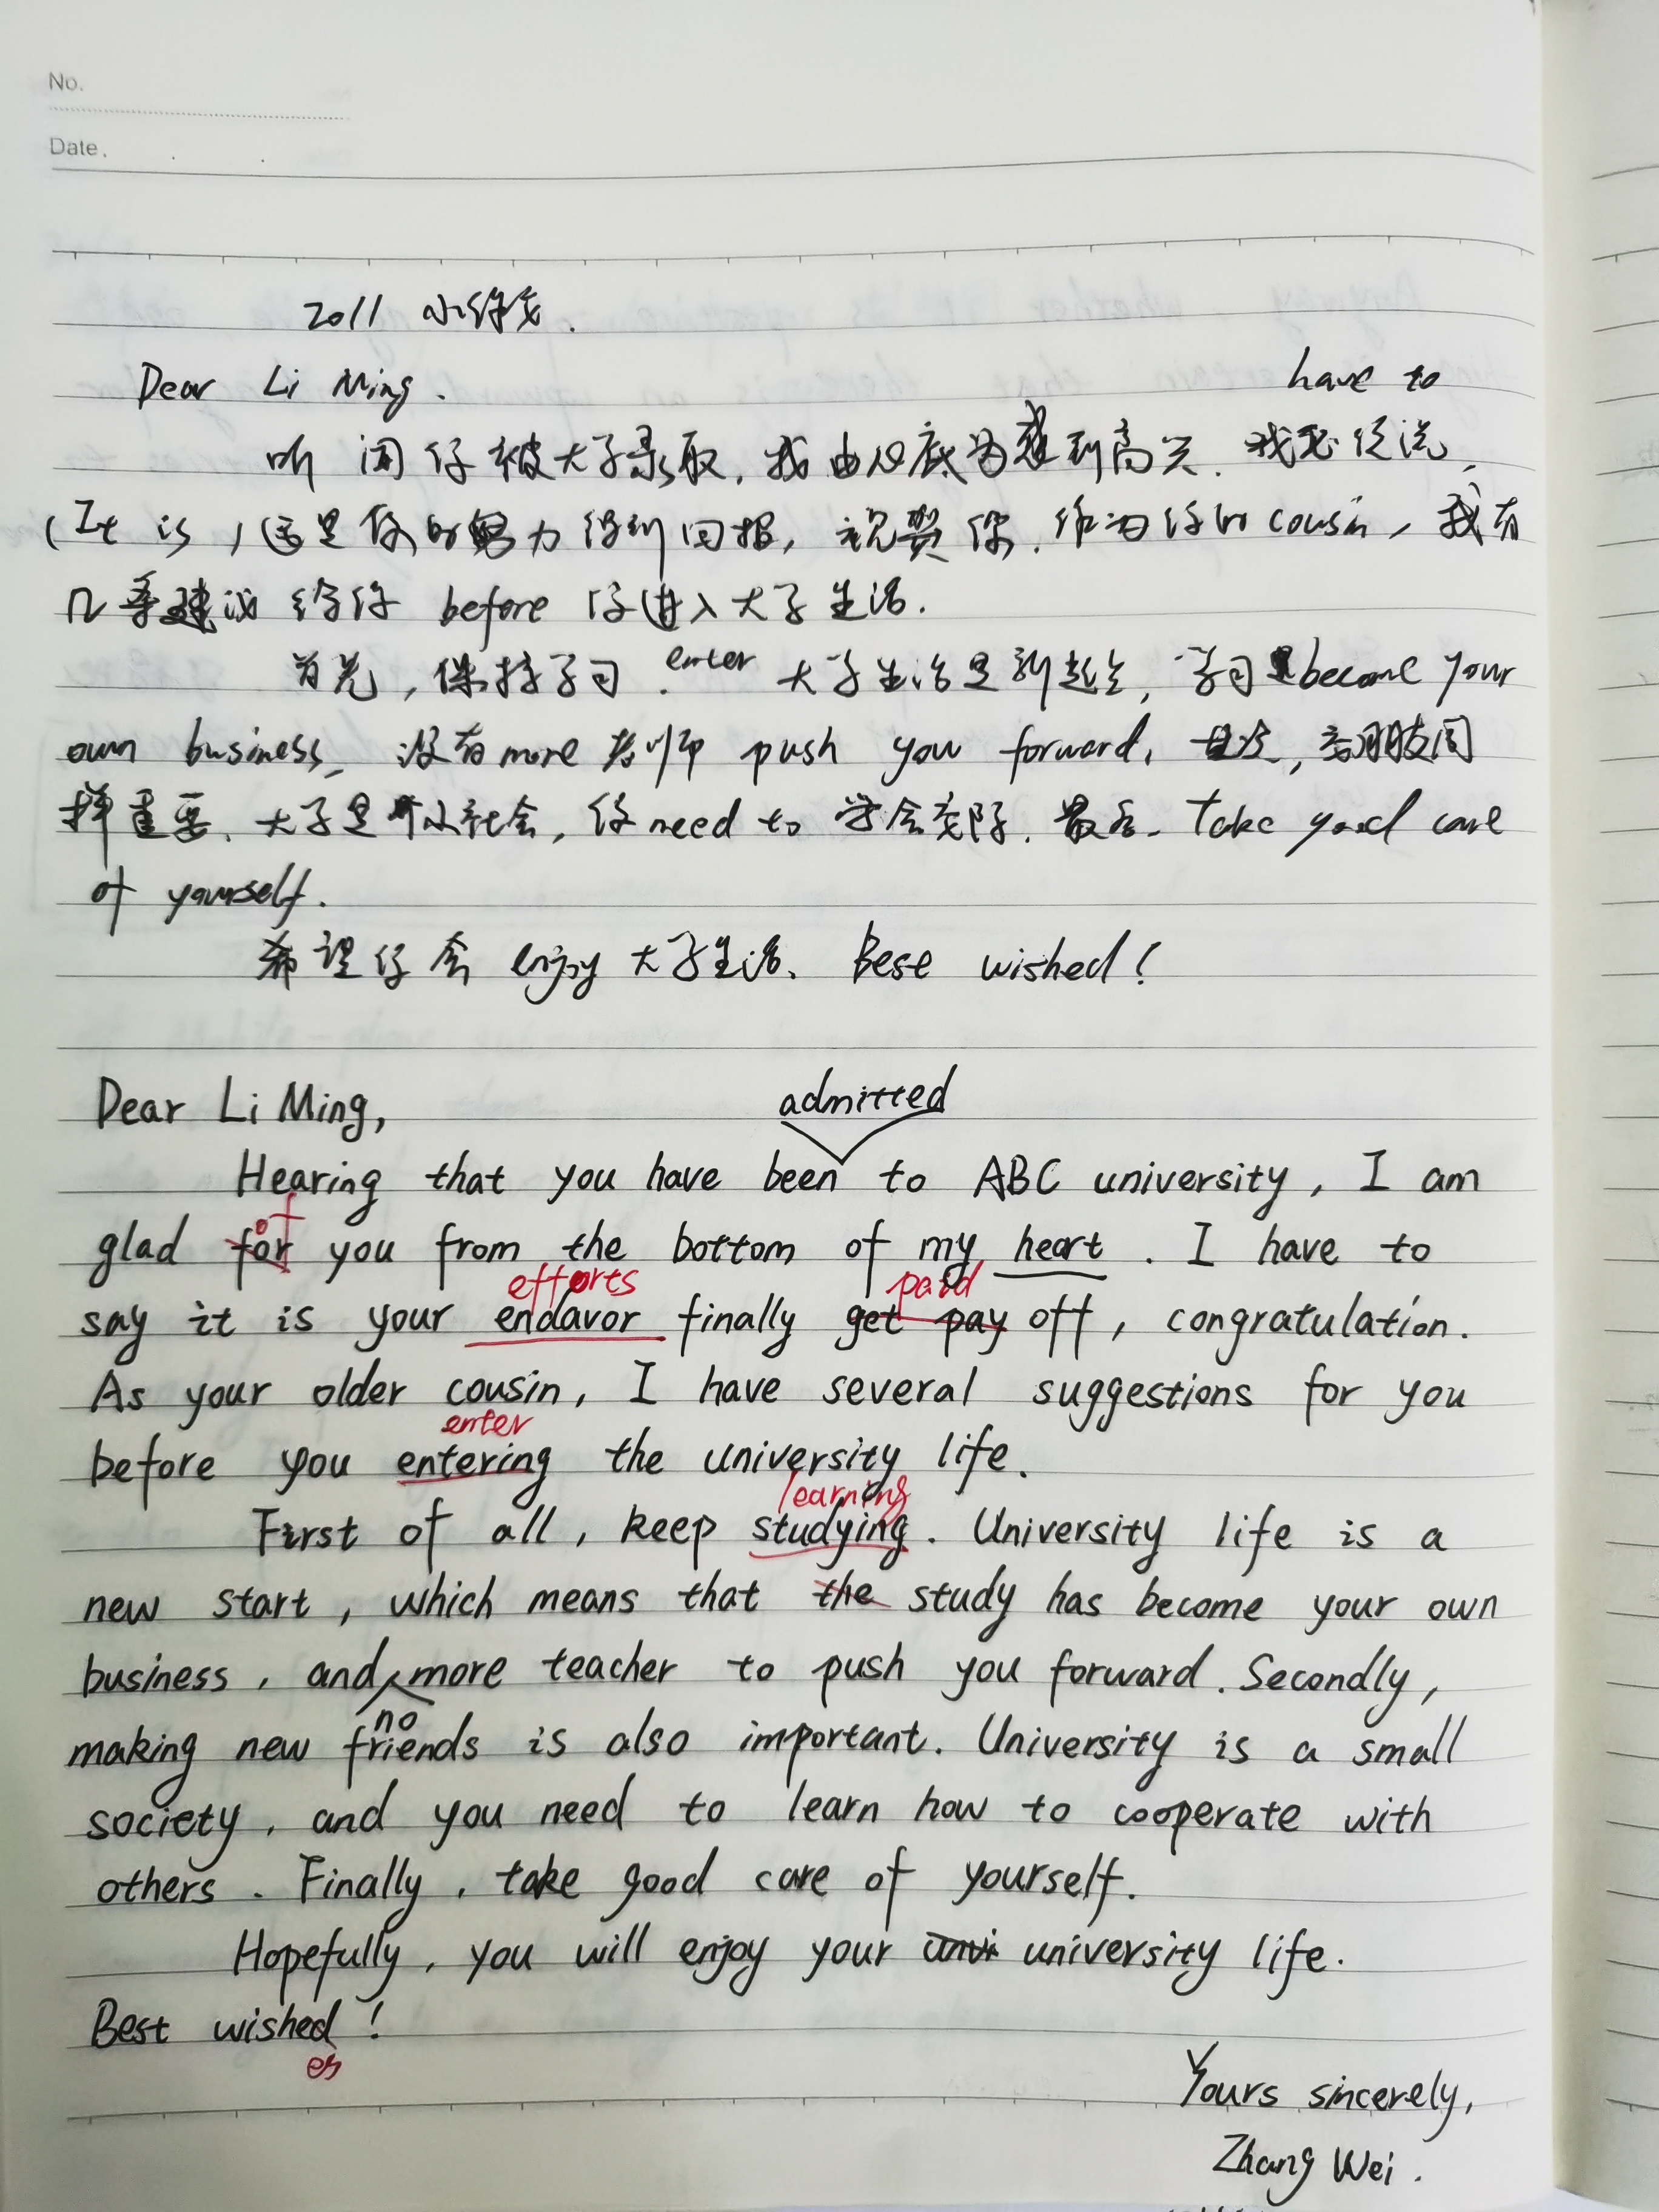 No.
Date.
2011 小作文.
Dear Li Ming.
have to
听闻你被大学录取, 我由心底为感到高兴. 我不得说,
(It is) 这是你的努力得到回报, 祝贺你. 作为你的 cousin, 我有
几条建议给你 before 你进入大学生活.
首先, 保持学习. enter 大学生活是新起点, 学习 become your
own business, 没有 more 老师 push you forward, 其次, 交朋友同
样重要. 大学是个小社会, 你 need to 学会交际. 最后. Take good care
of yourself.
希望你会 enjoy 大学生活. Best wished!
Dear Li Ming,
admitted
Hearing that you have been to ABC university, I am
of
glad for you from the bottom of my heart. I have to
efforts paid
say it is your endavor finally get pay off, congratulation.
As your older cousin, I have several suggestions for you
enter
before you entering the university life.
learning
First of all, keep studying. University life is a
new start, which means that the study has become your own
business, and more teacher to push you forward. Secondly,
no
making new friends is also important. University is a small
society, and you need to learn how to cooperate with
others. Finally, take good care of yourself.
Hopefully, you will enjoy your univi university life.
Best wished!
es
Yours sincerely,
Zhang Wei.